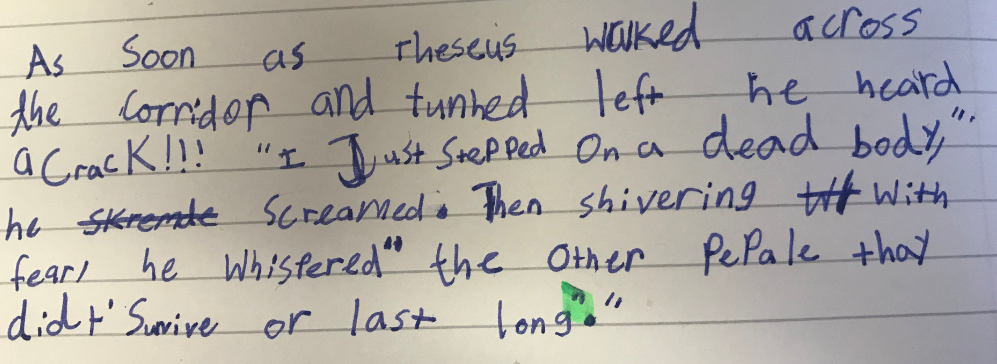 As Soon as Theseus walked across
the corridor and tunhed left he heard
a Crack!!! "I Just stepped on a dead body,".
he skremde screamed. Then shivering with
fear, he whispered" the other pepale thay
didt' Survive or last long"."